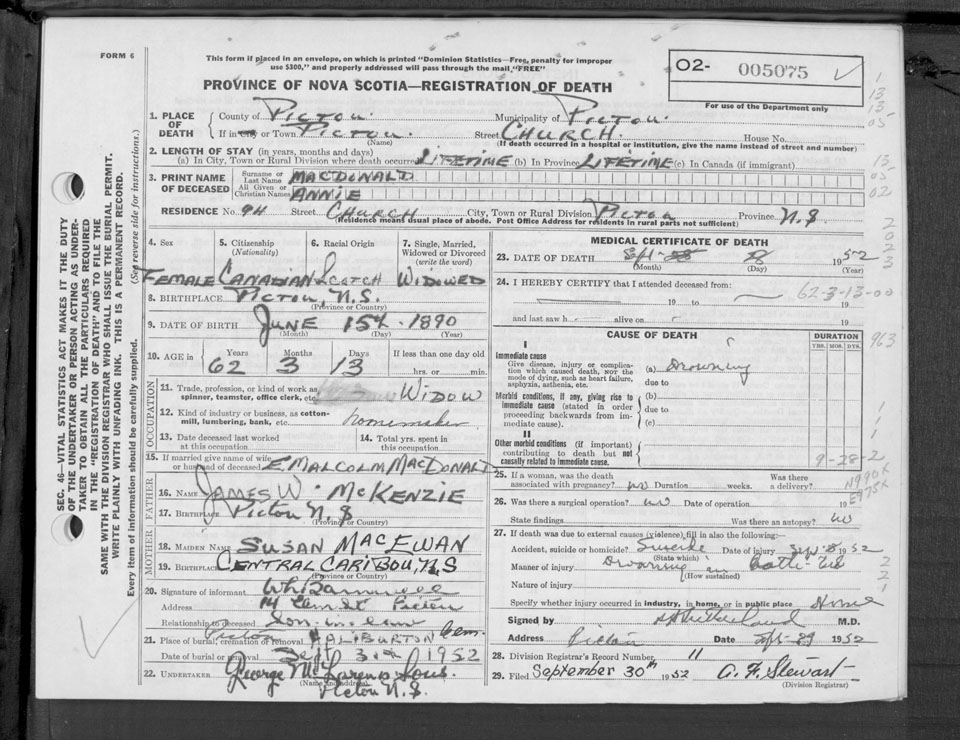 FORM 6
This form if placed in an envelope, on which is printed "Dominion Statistics—Free, penalty for improper
use $300," and properly addressed will pass through the mail, "FREE"
PROVINCE OF NOVA SCOTIA—REGISTRATION OF DEATH
O2- 005075
For use of the Department only
1. PLACE OF DEATH
County of PICTOU. Municipality of PICTOU.
If in City or Town PICTOU. Street CHURCH. House No.
(Name) (If death occurred in a hospital or institution, give the name instead of street and number)
2. LENGTH OF STAY (in years, months and days)
(a) In City, Town or Rural Division where death occurred LIFETIME (b) In Province LIFETIME (c) In Canada (if immigrant)
3. PRINT NAME OF DECEASED
Surname or Last Name MACDONALD
All Given or Christian Names ANNIE
RESIDENCE No. 94 Street CHURCH City, Town or Rural Division PICTOU Province N.S
(Residence means usual place of abode. Post Office Address for residents in rural parts not sufficient)
4. Sex
FEMALE
5. Citizenship
(Nationality)
CANADIAN
6. Racial Origin
SCOTCH
7. Single, Married,
Widowed or Divorced
(write the word)
WIDOWED
8. BIRTHPLACE PICTOU, N.S.
(Province or Country)
9. DATE OF BIRTH JUNE 15th. 1890
(Month) (Day) (Year)
10. AGE in
Years Months Days If less than one day old
62 3 13 hrs. or min.
OCCUPATION
11. Trade, profession, or kind of work as
spinner, teamster, office clerk, etc. WIDOW
12. Kind of industry or business, as cotton-
mill, lumbering, bank, etc. homemaker
13. Date deceased last worked
at this occupation.
14. Total yrs. spent in
this occupation
15. If married give name of wife
or husband of deceased E MALCOLM MACDONALD
FATHER
16. NAME JAMES W. McKENZIE
17. BIRTHPLACE PICTOU N.S
(Province or Country)
MOTHER
18. MAIDEN NAME SUSAN MACEWAN
19. BIRTHPLACE CENTRAL CARIBOU, N.S
(Province or Country)
20. Signature of informant
Address Pictou
Relationship to deceased Son-in-law
21. Place of burial, cremation or removal Pictou HALIBURTON Cem.
Date of burial or removal Sept 30th 1952
22. UNDERTAKER George McLaren & Sons.
(Name and address)
Pictou N.S.
MEDICAL CERTIFICATE OF DEATH
23. DATE OF DEATH Sept. 28 1952
(Month) (Day) (Year)
24. I HEREBY CERTIFY that I attended deceased from:
19 to 19
and last saw h alive on 19
62-3-13-00
CAUSE OF DEATH
DURATION
YRS. MOS. DYS.
963
I
Immediate cause
Give disease, injury or complica-
tion which caused death, not the
mode of dying, such as heart failure,
asphyxia, asthenia, etc.
(a) Drowning
due to
Morbid conditions, if any, giving rise to
immediate cause (stated in order
proceeding backwards from im-
mediate cause).
(b)
due to
(c)
II
Other morbid conditions (if important)
contributing to death but not
causally related to immediate cause.
9-28-2
25. If a woman, was the death
associated with pregnancy? no Duration weeks. Was there
a delivery?
N990X
E975X
26. Was there a surgical operation? no Date of operation 19
State findings Was there an autopsy? no
27. If death was due to external causes (violence) fill in also the following:—
Accident, suicide or homicide? Suicide Date of injury Sept 28 1952
(State which)
Manner of injury Drowning in Bath-tub
(How sustained)
Nature of injury
Specify whether injury occurred in industry, in home, or in public place Home
Signed by Sutherland M.D.
Address Pictou Date Sept-29 1952
28. Division Registrar's Record Number 11
29. Filed September 30th 1952 A. F. Stewart
(Division Registrar)
SEC. 46—VITAL STATISTICS ACT MAKES IT THE DUTY
OF THE UNDERTAKER OR PERSON ACTING AS UNDER-
TAKER TO OBTAIN ALL THE PARTICULARS REQUIRED
IN THE "REGISTRATION OF DEATH" AND TO FILE THE
SAME WITH THE DIVISION REGISTRAR WHO SHALL ISSUE THE BURIAL PERMIT.
WRITE PLAINLY WITH UNFADING INK. THIS IS A PERMANENT RECORD.
Every item of information should be carefully supplied. (See reverse side for instructions.)
1
13
13
05
13
05
02
2
0
2
3
1
1
1
2
2
1